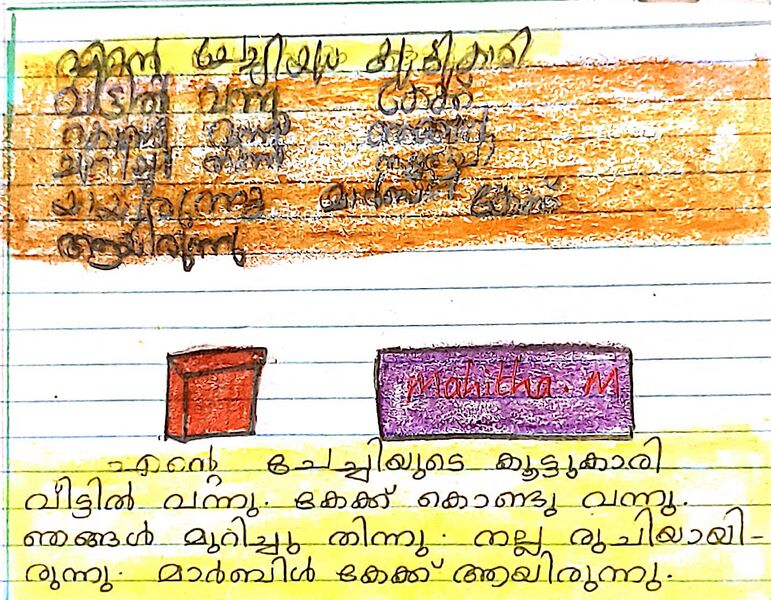 എന്റെ ചേച്ചിയുടെ കൂട്ടുകാരി
വീട്ടിൽ വന്നു കേക്ക്
വന്നു
മാർബിൾ കേക്ക്
ആയിരുന്നു
Mahitha. M
എന്റെ ചേച്ചിയുടെ കൂട്ടുകാരി
വീട്ടിൽ വന്നു. കേക്ക് കൊണ്ടു വന്നു.
ഞങ്ങൾ മുറിച്ചു തിന്നു. നല്ല രുചിയായി-
രുന്നു. മാർബിൾ കേക്ക് ആയിരുന്നു.